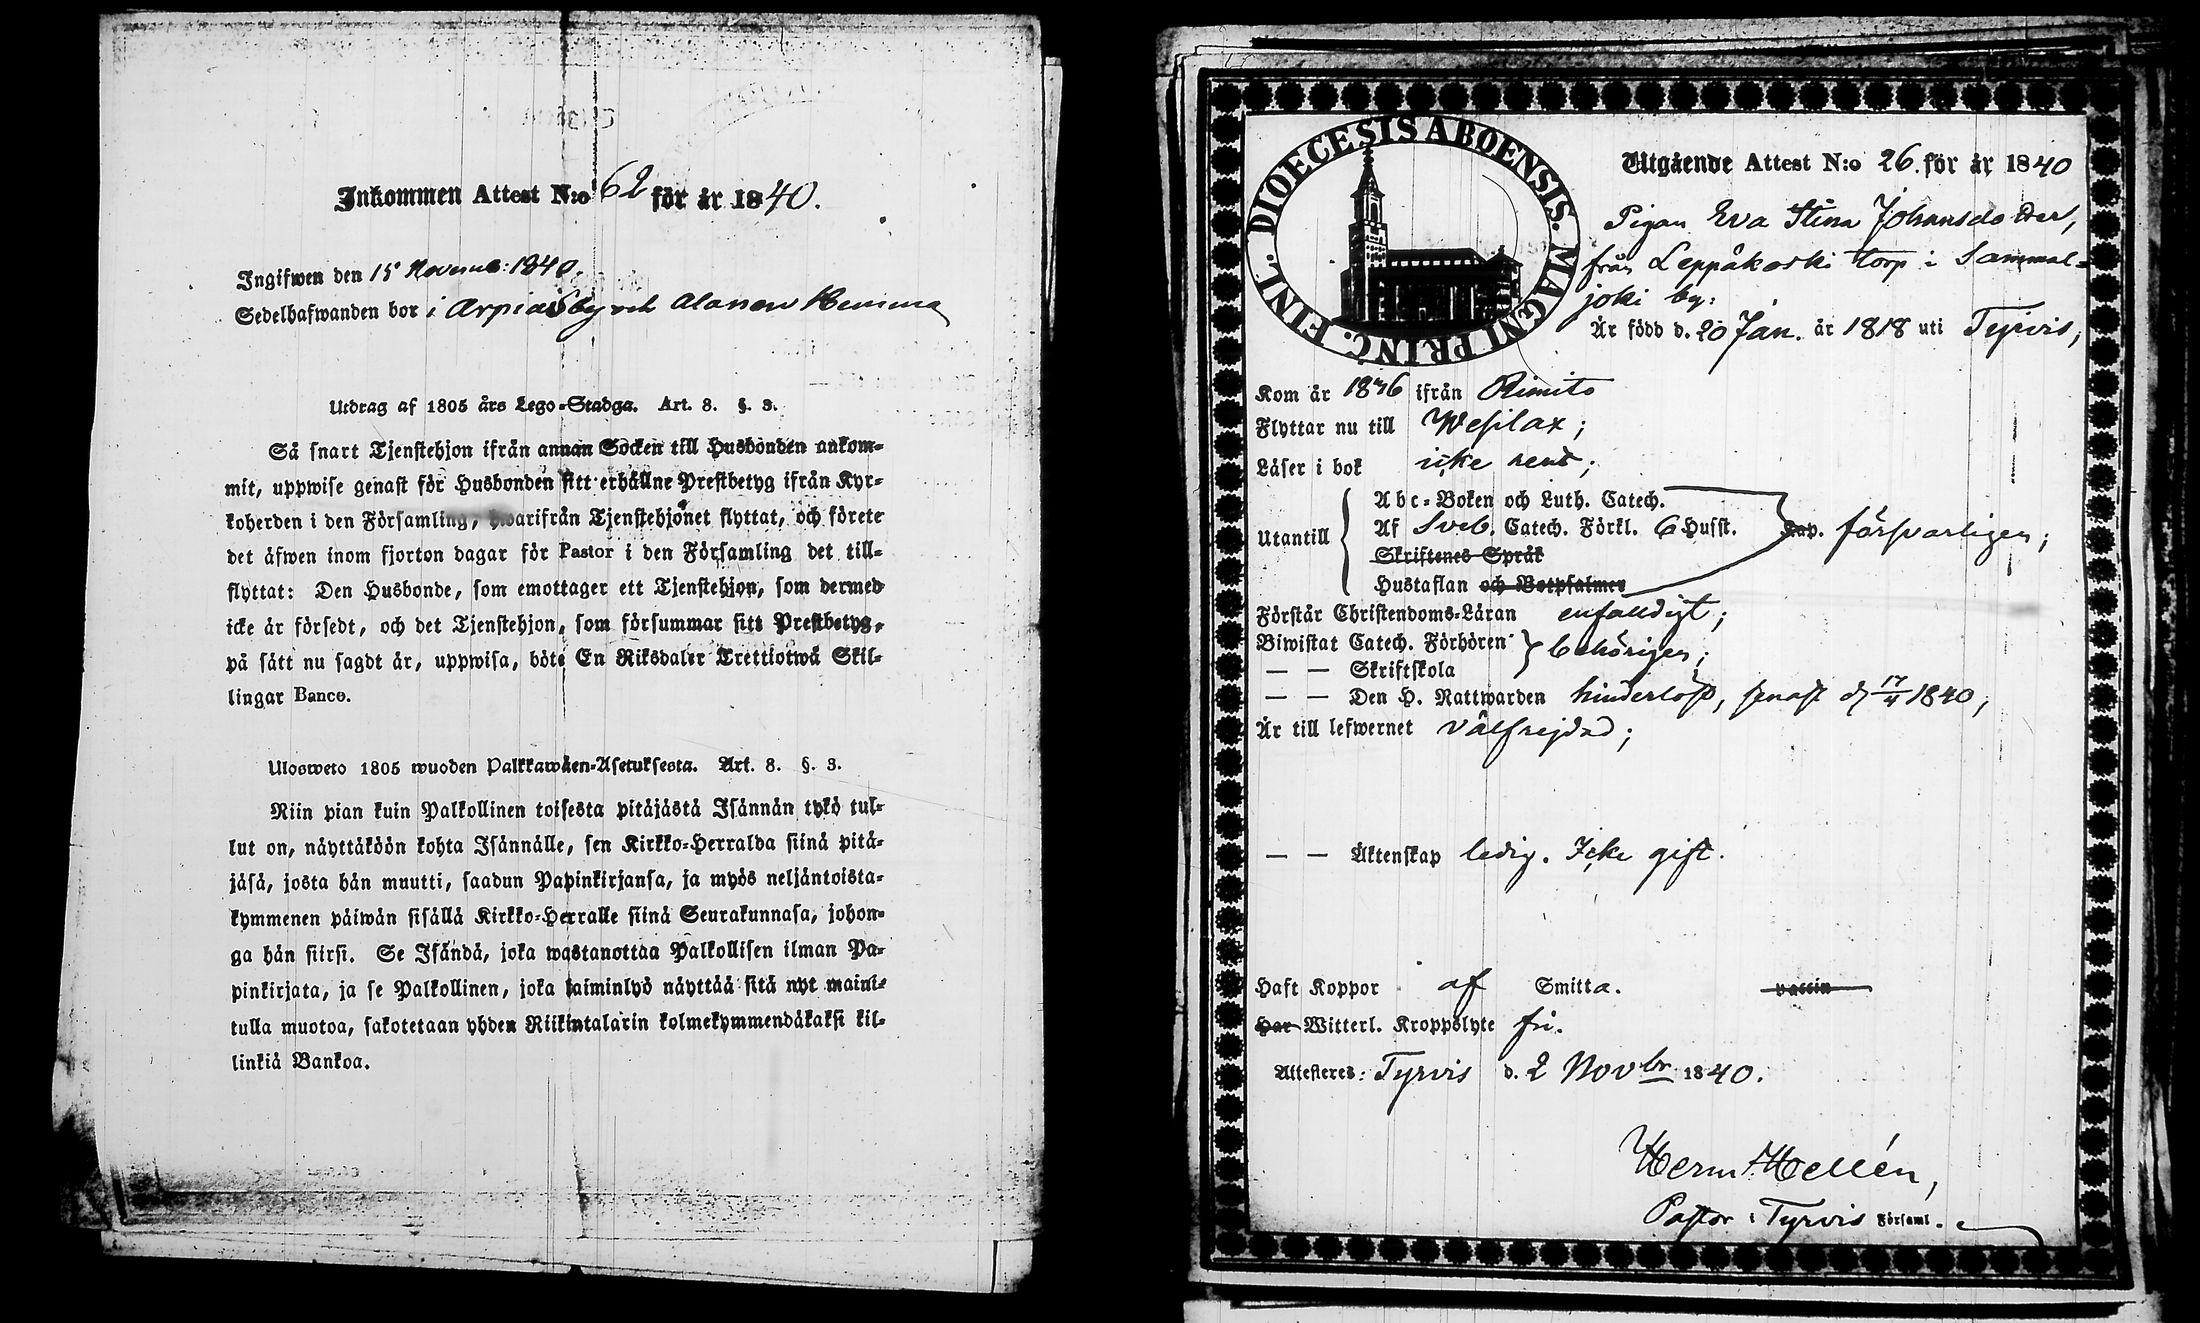 Inkommen Attest N:o 62 för år 1840.
Ingifwen den 15 Novemb: 1840.
Sedelhafwanden bor i Arpiais by och Alanen Hemma
Utdrag af 1805 års Lego-Stadga. Art. 8. §. 3.
Så snart Tjenstehjon ifrån annan Socken till Husbonden ankom-
mit, uppwise genast för Husbonden sitt erhållne Prestbetyg ifrån Kyr-
koherden i den Församling, hwarifrån Tjenstehjonet flyttat, och förete
det äfwen inom fjorton dagar för Pastor i den Församling det till-
flyttat: Den Husbonde, som emottager ett Tjenstehjon, som dermed
icke är försedt, och det Tjenstehjon, som försummar sitt Prestbetyg,
på sätt nu sagdt är, uppwisa, böte En Riksdaler Trettiotwå Skil-
lingar Banco.
Ulosweto 1805 wuoden Palkkawäen-Asetuksesta. Art. 8. §. 3.
Niin pian kuin Palkollinen toisesta pitäjästä Isännän tykö tul-
lut on, näyttäköön kohta Isännälle, sen Kirkko-Herralda siinä pitä-
jäsä, josta hän muutti, saadun Papinkirjansa, ja myös neljäntoista-
kymmenen päiwän sisällä Kirkko-Herralle siinä Seurakunnasa, johon-
ga hän siirsi. Se Isändä, joka wastanottaa Palkollisen ilman Pa-
pinkirjata, ja se Palkollinen, joka laiminlyö näyttää sitä nyt maini-
tulla muotoa, sakotetaan yhden Riikintalarin kolmekymmendäkaksi kil-
linkiä Bankoa.
DIOECESIS ABOENSIS. MAGNI PRINC. FINL.
Utgående Attest N:o 26. för år 1840
Pigan Eva Stina Johansdotter,
från Leppäkoski torp i Sammal-
joki by:
Är född d. 20 Jan. år 1818 uti Tyrvis,
Kom år 1836 ifrån Rimito
Flyttar nu till Wesilax;
Läser i bok icke rent;
Utantill
Abc-Boken och Luth. Catech.
Af Sveb. Catech. Förkl. 6 Husst. Cap. försvarligen;
Skriftenes Språk
Hustaflan och Botpsalmer
Förstår Christendoms-Läran enfaldigt;
Biwistat Catech. Förhören behörigen;
— — Skriftskola
— — Den H. Nattwarden hinderlöst, senast d. 17/4 1840,
Är till lefwernet välfrejdad;
— — Äktenskap ledig. Icke gift.
Haft Koppor af Smitta. vaccin
Har Witterl. Kroppslyte fri.
Attesteres: Tyrvis d. 2 Novbr 1840.
Herm. Hellén,
Pastor i Tyrvis Församl.